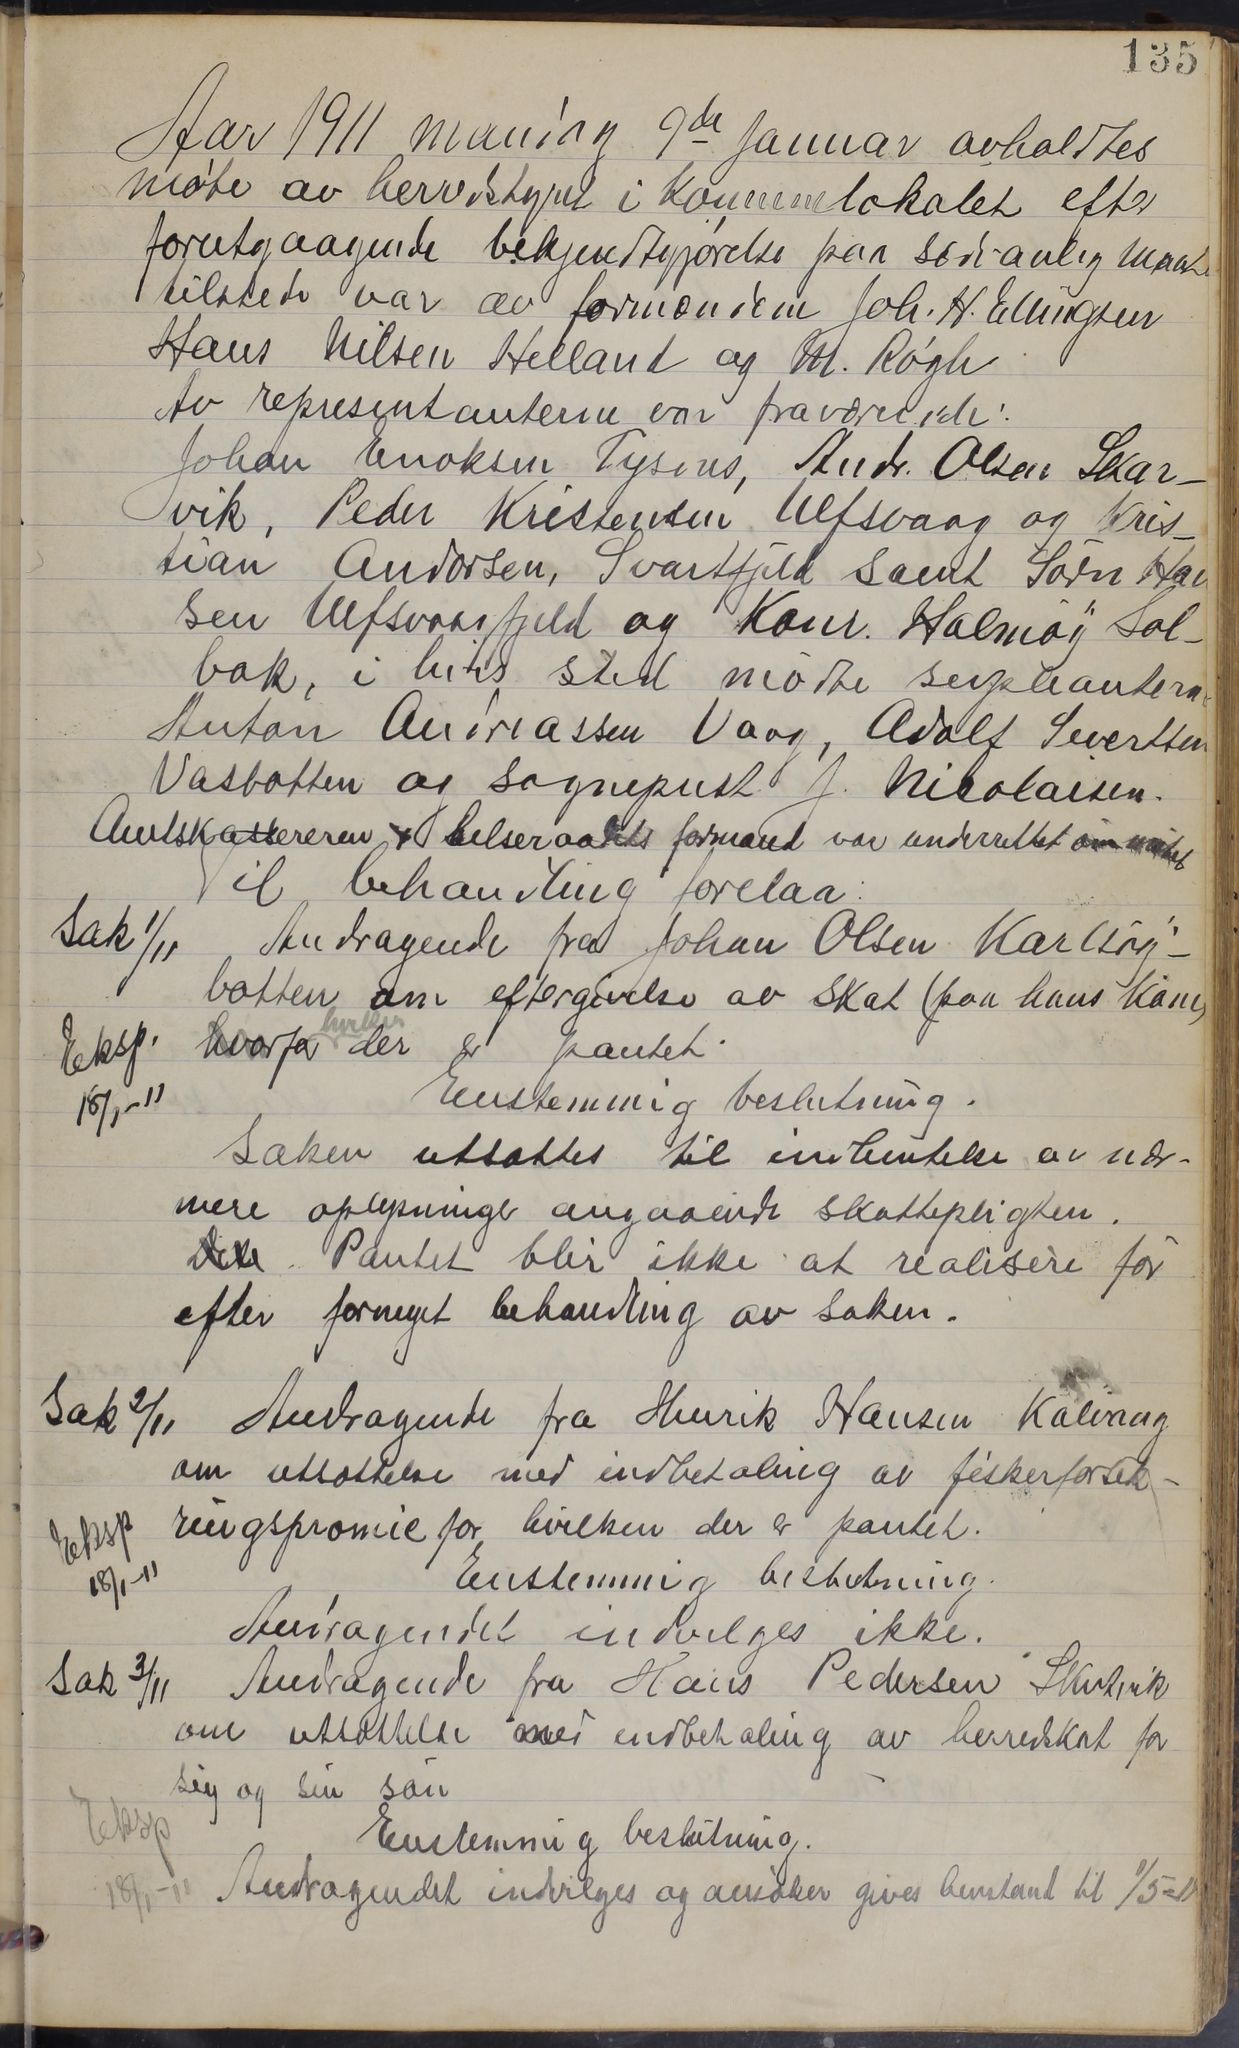 135
Aar 1911 mandag 9de Januar avholdtes
møte av herredstyret i kommunelokalet efter
forutgaaende bekjendtgjørelse paa sedvanlig maate
tilstede var av formændene Joh. H. Ellingsen
Hans Nilsen Helland og M. Røgh
Av representanterne var fraværende:
Johan Enoksen Tysnes, Andr. Olsen Skar-
vik, Peder Kristensen Ulfsvaag og Kris-
tian Andorsen, Svartfjeld samt Sørn Han
sen Ulfsvaagfjeld og Konr. Halmøy Sol-
bak, i hvis sted mødte supleanterne
Anton Andreassen Vaag, Adolf Sivertsen
Vasbotten og sogneprest J. Nikolaisen.
Amtskassereren & helseraadets formand var underrettet om møtet
Til behandling forelaa:
Sak 1/11 Andragende fra Johan Olsen Karlsøy-
botten om eftergivelse av skat (paa hans kone)
Eksp. hvorfor hvilken der er pantet.
18/1-11 Enstemmig beslutning.
Saken utsattes til indhentelse av nær-
mere oplysninger angaaende skattepligten.
Pantet blir ikke at realisere før
efter fornyet behandling av saken.
Sak 2/11 Andragende fra Henrik Hansen Kalvaag
om utsættelse med indbetaling av fiskerforsik-
Eksp ringspræmie for hvilken der er pantet.
18/1-11 Enstemmig beslutning.
Andragendet indvilges ikke.
Sak 3/11 Andragende fra Hans Pedersen Skutvik
om utsættelse med indbetaling av herredskat for
sig og sin søn
Eksp Enstemmig beslutning.
18/1-11 Andragendet indvilges og ansøker gives henstand til 1/5-11